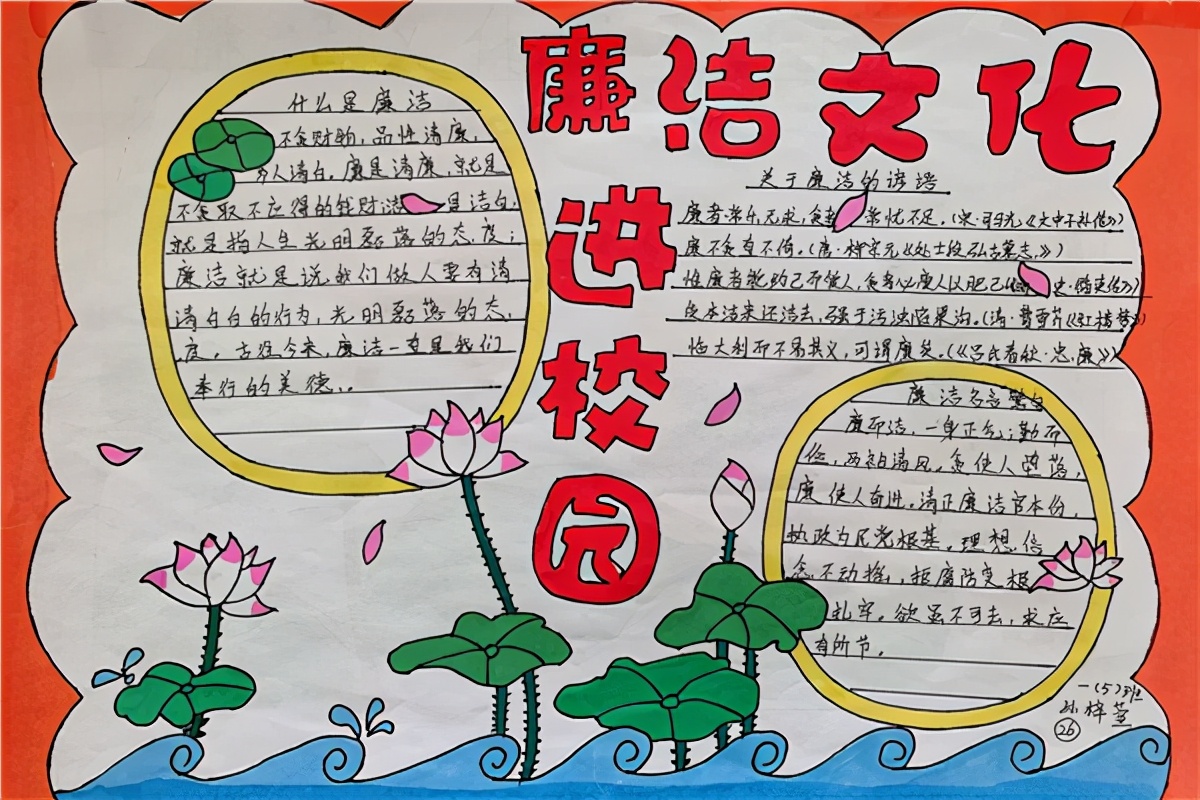 廉洁文化
进校园
什么是廉洁
不贪财物,品性清廉,
为人清白。廉是清廉,就是
不贪取不应得的钱财;洁 是洁白,
就是指人生光明磊落的态度;
廉洁就是说我们做人要有清
清白白的行为,光明磊落的态
度。古往今来,廉洁一直是我们
奉行的美德。
关于廉洁的谚语
廉者常乐无求,贪者 常忧不足。(宋·司马光《文中子补传》)
廉不贪直不倚。(唐·
惟廉者能约己而爱人,贪者必
质本洁来还洁去,强于污淖陷渠沟。(清·曹雪芹《红楼梦》)
临大利而不易其义,可谓廉矣。(《吕氏春秋·忠廉》)
廉洁名言警句
廉而洁,一身正气;勤而
俭,两袖清风。贪使人堕落,
廉使人奋进。清正廉洁官本份,
执政为民党根基。理想信
念不动摇,拒腐防变根
扎牢。欲虽不可去,求应
有所节。
一(5)班
孙梓萱
26